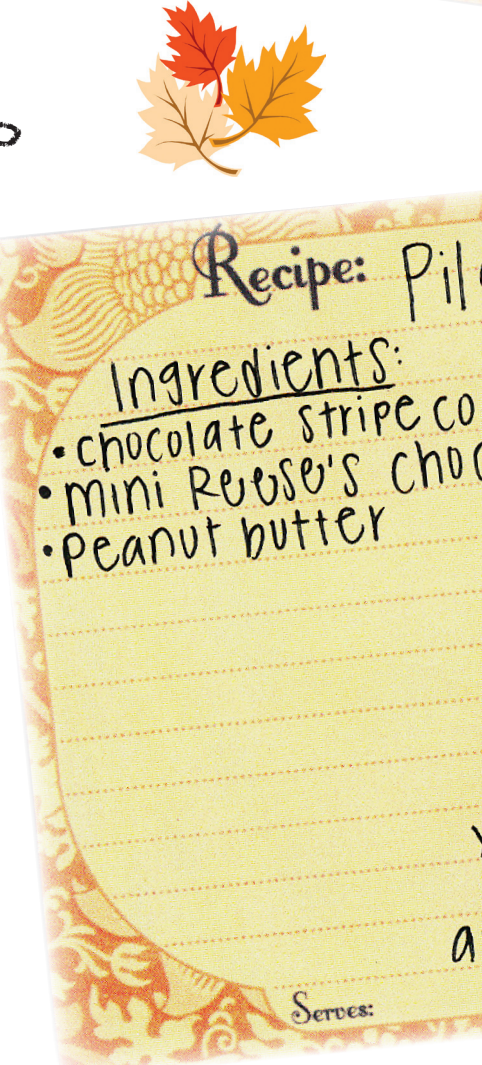 Recipe:
Ingredients:
• chocolate stripe co
• mini Reese's choc
• Peanut butter
a
Serves: